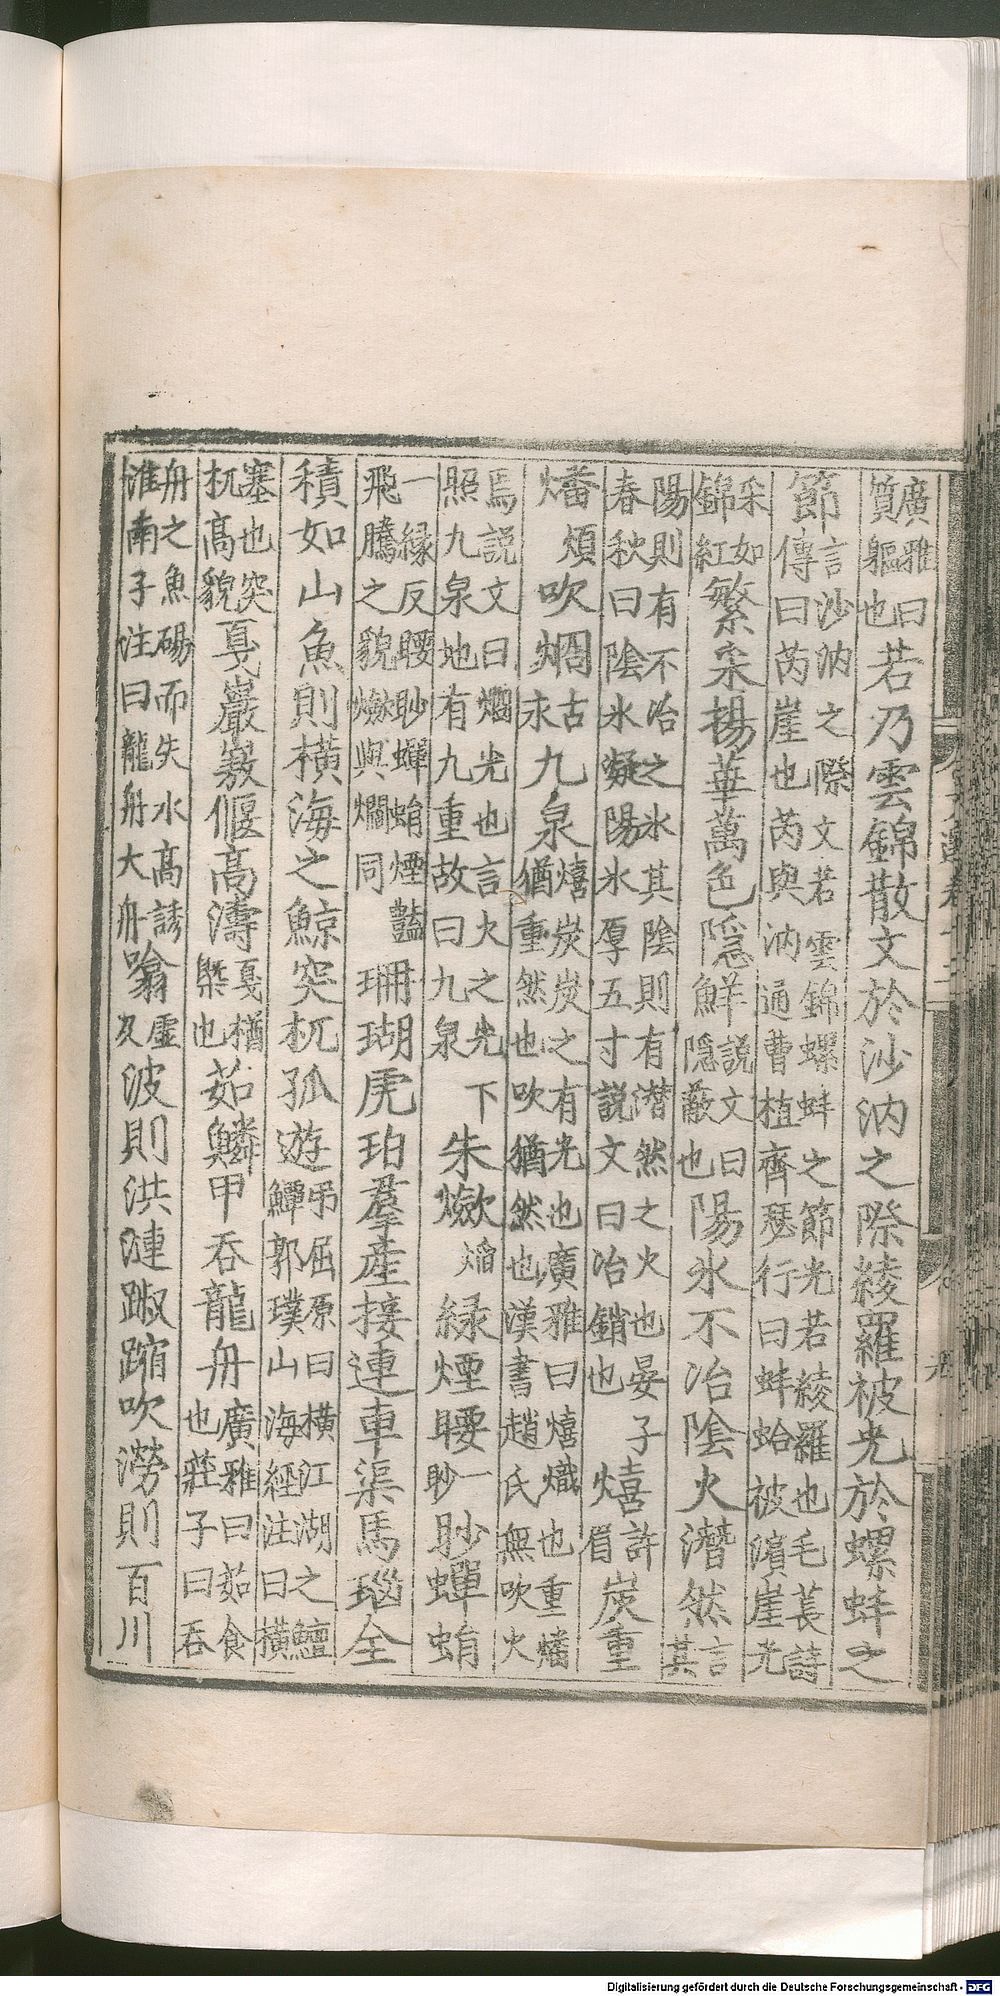 廣雅曰質軀也若乃雲錦散文於沙汭之際綾羅被光於螺蚌之
節言沙汭之際文若雲錦螺蚌之節光若綾羅也毛萇詩傳曰芮崖也芮與汭通曹植齊瑟行曰蚌蛤被濱崖光
采如錦紅繁采揚華萬色隱鮮說文曰隱蔽也陽氷不冶陰火潛然言其
陽則有不冶之氷其陰則有潛然之火也晏子春秋曰陰氷凝陽氷厚五寸說文曰冶銷也熺許眉炭重
燔煩吹烱古永九泉熺炭炭之有光也廣雅曰熺熾也重燔猶重然也吹猶然也漢書趙氏無吹火
焉說文曰烱光也言火之光下照九泉地有九重故曰九泉朱㷿焰緑煙腰一眇眇蟬蛸
一縁反腰眇蟬蛸煙豔飛騰之貌㷿與爓同珊瑚虎珀羣產接連車渠馬瑙全
積如山魚則橫海之鯨突杌孤遊弔屈原曰橫江湖之鱣鱏郭璞山海經注曰橫
塞也突杌高貌戛巖偃高濤戛楢槩也茹鱗甲吞龍舟廣雅曰茹食也莊子曰吞
舟之魚碭而失水高誘淮南子注曰龍舟大舟噏虛及波則洪漣踧蹜吹澇則百川
Digitalisierung gefördert durch die Deutsche Forschungsgemeinschaft - DFG